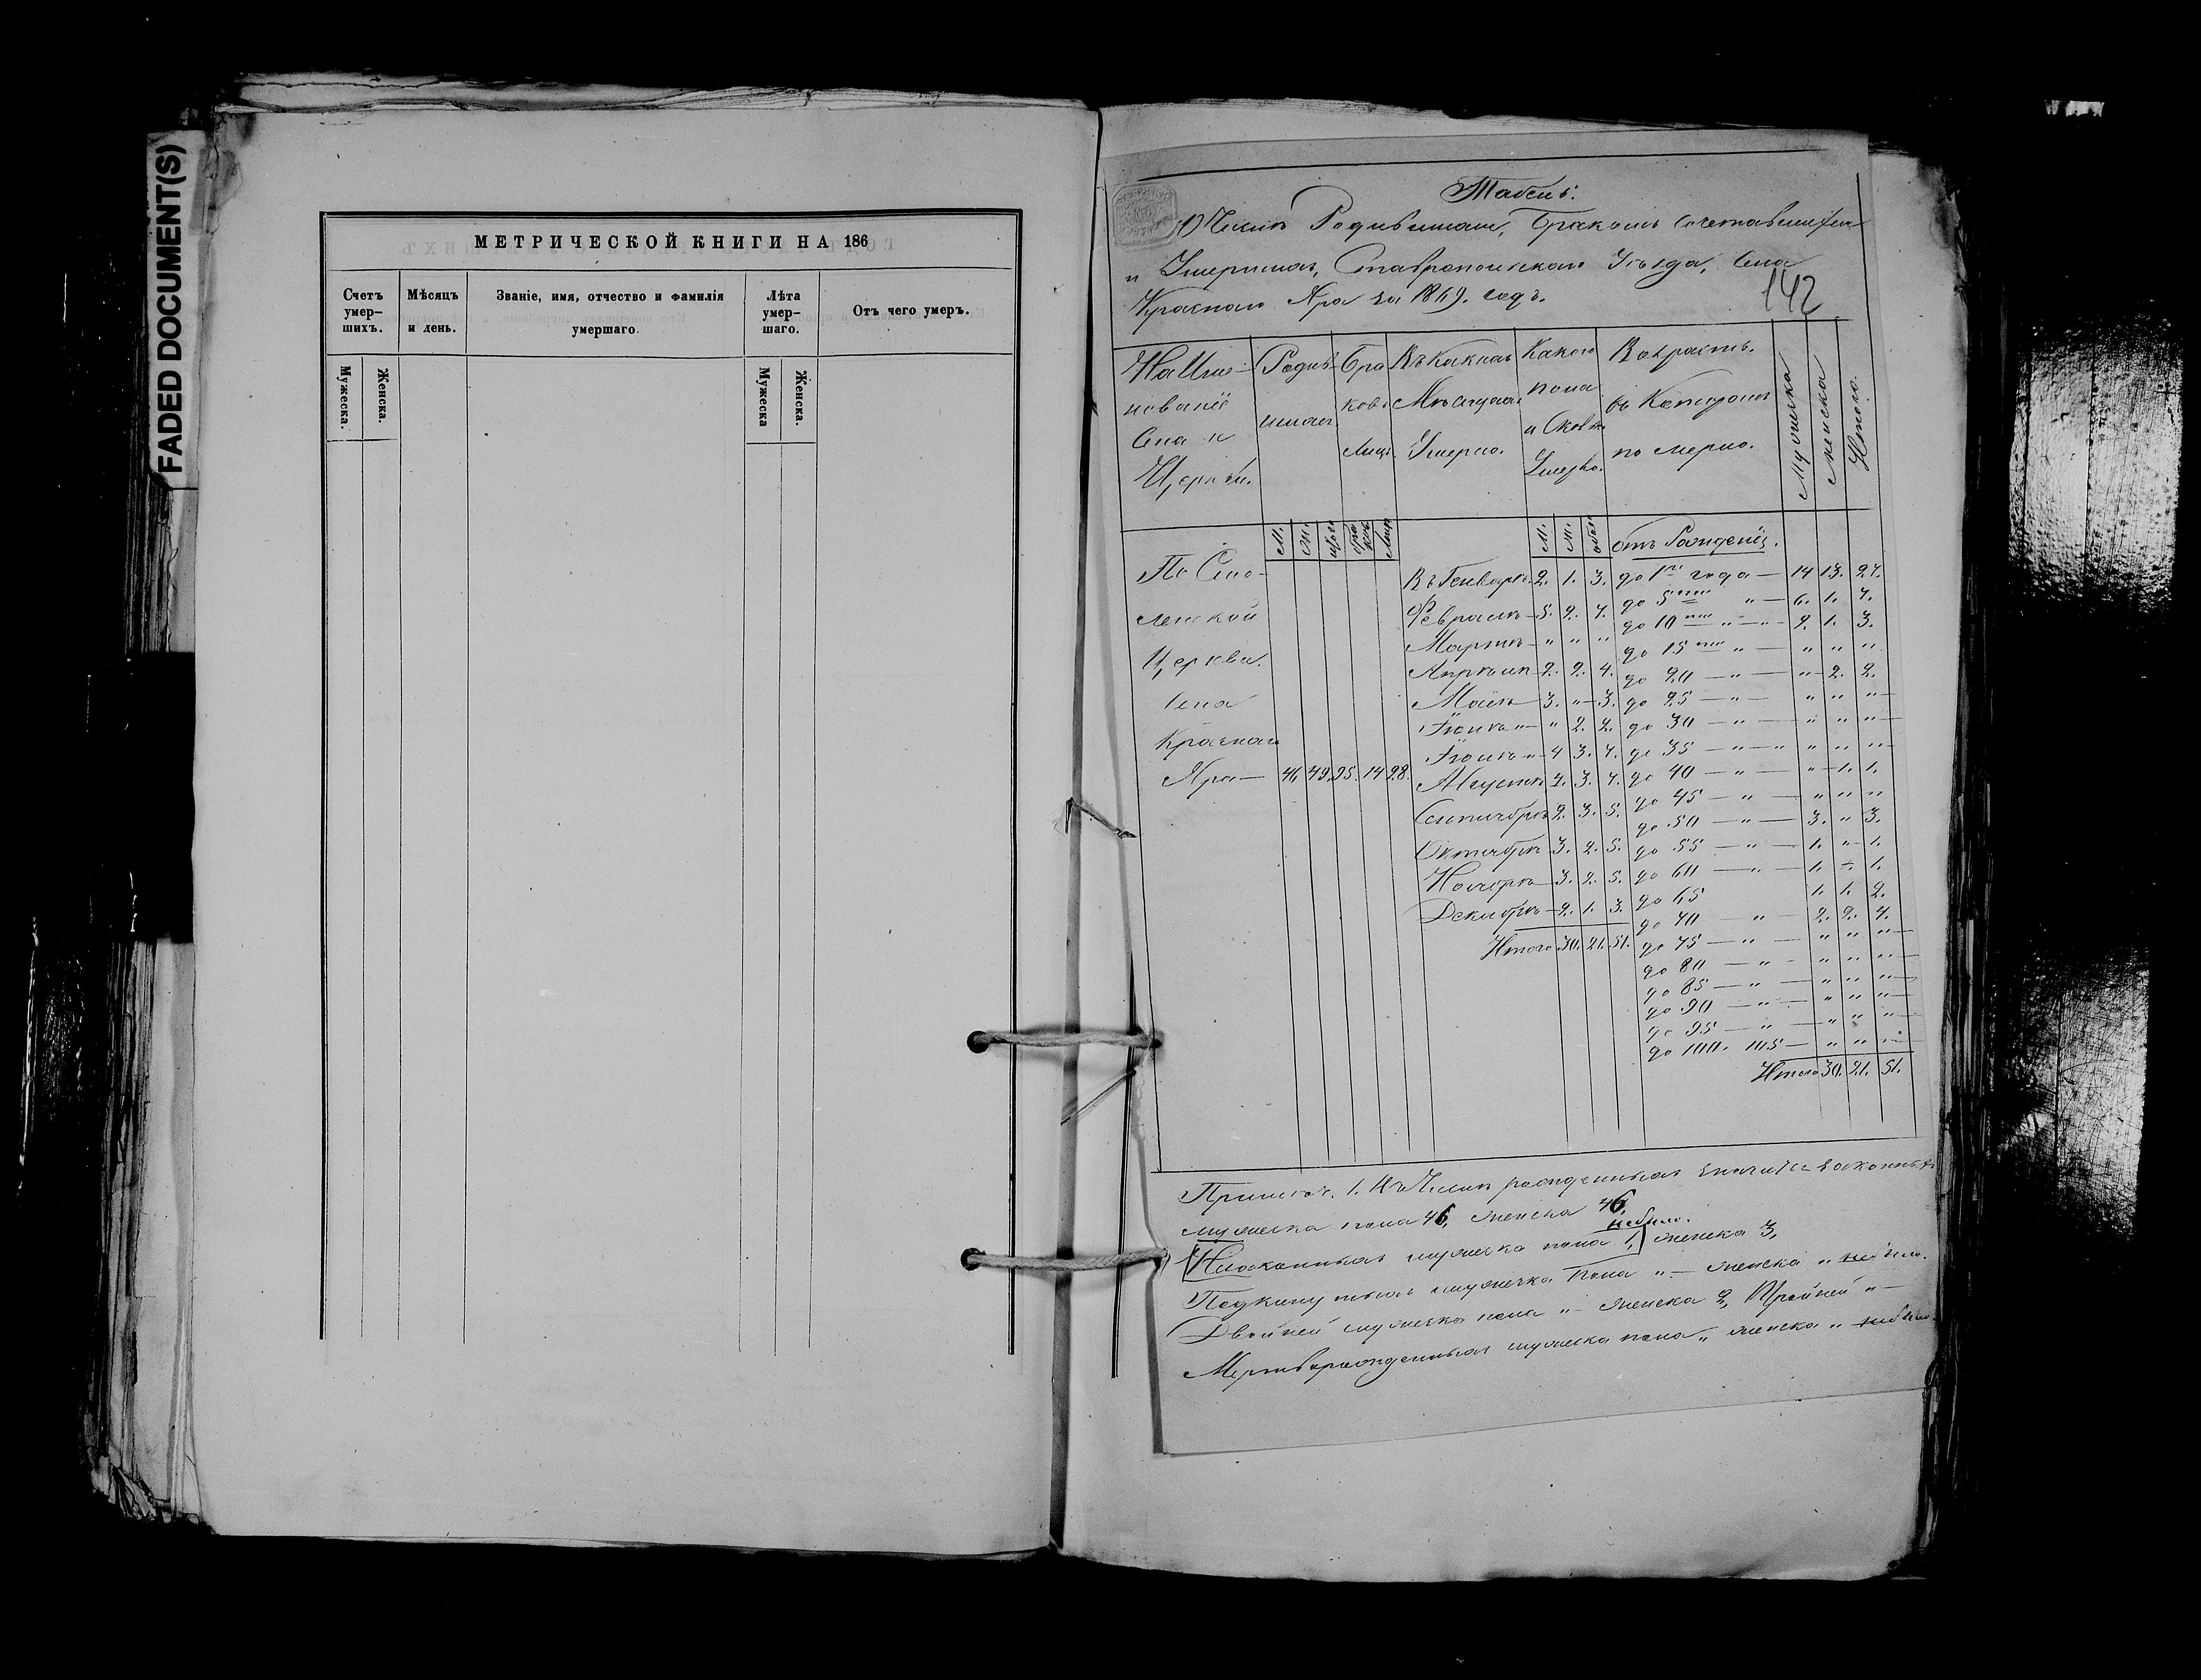 FADED DOCUMENT(S)
МЕТРИЧЕСКОЙ КНИГИ НА 186
Счетъ умер-шихъ.
Мѣсяцъ и день.
Званіе, имя, отчество и фамилія умершаго.
Лѣта умер-шаго.
Отъ чего умеръ.
Мужеска. Женска. Мужеска Женска.
Табель.
О Числѣ Родившихся, Бракомъ Сочетавшихся
и Умершихъ, Ставропольскаго Уѣзда, Села
Краснаго Яра за 1869. годъ.
142
На Име-нованіе Села и Церкви.
Родив-шихся.
Бра-ковъ Лицъ.
Въ Какихъ Мѣсяцахъ Умерло.
Какого пола и Сколько Умерло.
Возрастъ въ Которомъ по мерло.
Мужеска
Женска
Итого.
М. Ж. Лицъ М. Ж. обое
отъ Рожденія.
По Смо-ленской Церкви. Села Краснаго Яра — 46 49. 95. 14 28.
Въ Генварѣ 2. 1. 3.
Февралѣ 5. 2. 7.
Мартѣ " " "
Апрѣлѣ 2. 2. 4.
Маѣ 3. " 3.
Іюнѣ " 2. 2.
Іюлѣ 4 3. 7.
Августѣ 4. 3. 7.
Сентябрѣ 2. 3. 5.
Октябрѣ 3. 2. 5.
Ноябрѣ 3. 2. 5.
Декабрѣ 2. 1. 3.
Итого 30. 21. 51.
до 1го года — 14 13. 27.
до 5ти " — 6. 1. 7.
до 10ти " — 2. 1. 3.
до 15ти " — " " "
до 20 — " — " 2. 2.
до 25 — " — " " "
до 30 — " — " " "
до 35 — " — " " "
до 40 — " — " 1. 1.
до 45 — " — " " "
до 50 — " — 3. " 3.
до 55 — " — 1. " 1.
до 60 — " — 1. " 1.
до 65 1. 1. 2.
до 70 — " — 2. 2. 4.
до 75 — " — " " "
до 80 — " — " " "
до 85 — " — " " "
до 90 — " — " " "
до 95 — " — " " "
до 100. 105 — " " "
Итого 30. 21. 51.
Примѣч. 1. Въ Числѣ рожденныхъ значится законныхъ
мужеска пола 46, женска 46,
небыло.
Незаконныхъ мужеска пола 1, женска 3,
Подкинутыхъ мужеска Пола " — женска " небыло.
Двойней мужеска пола " — женска 2, Тройней " —
Мертворожденныхъ мужеска пола " женска " небыло.